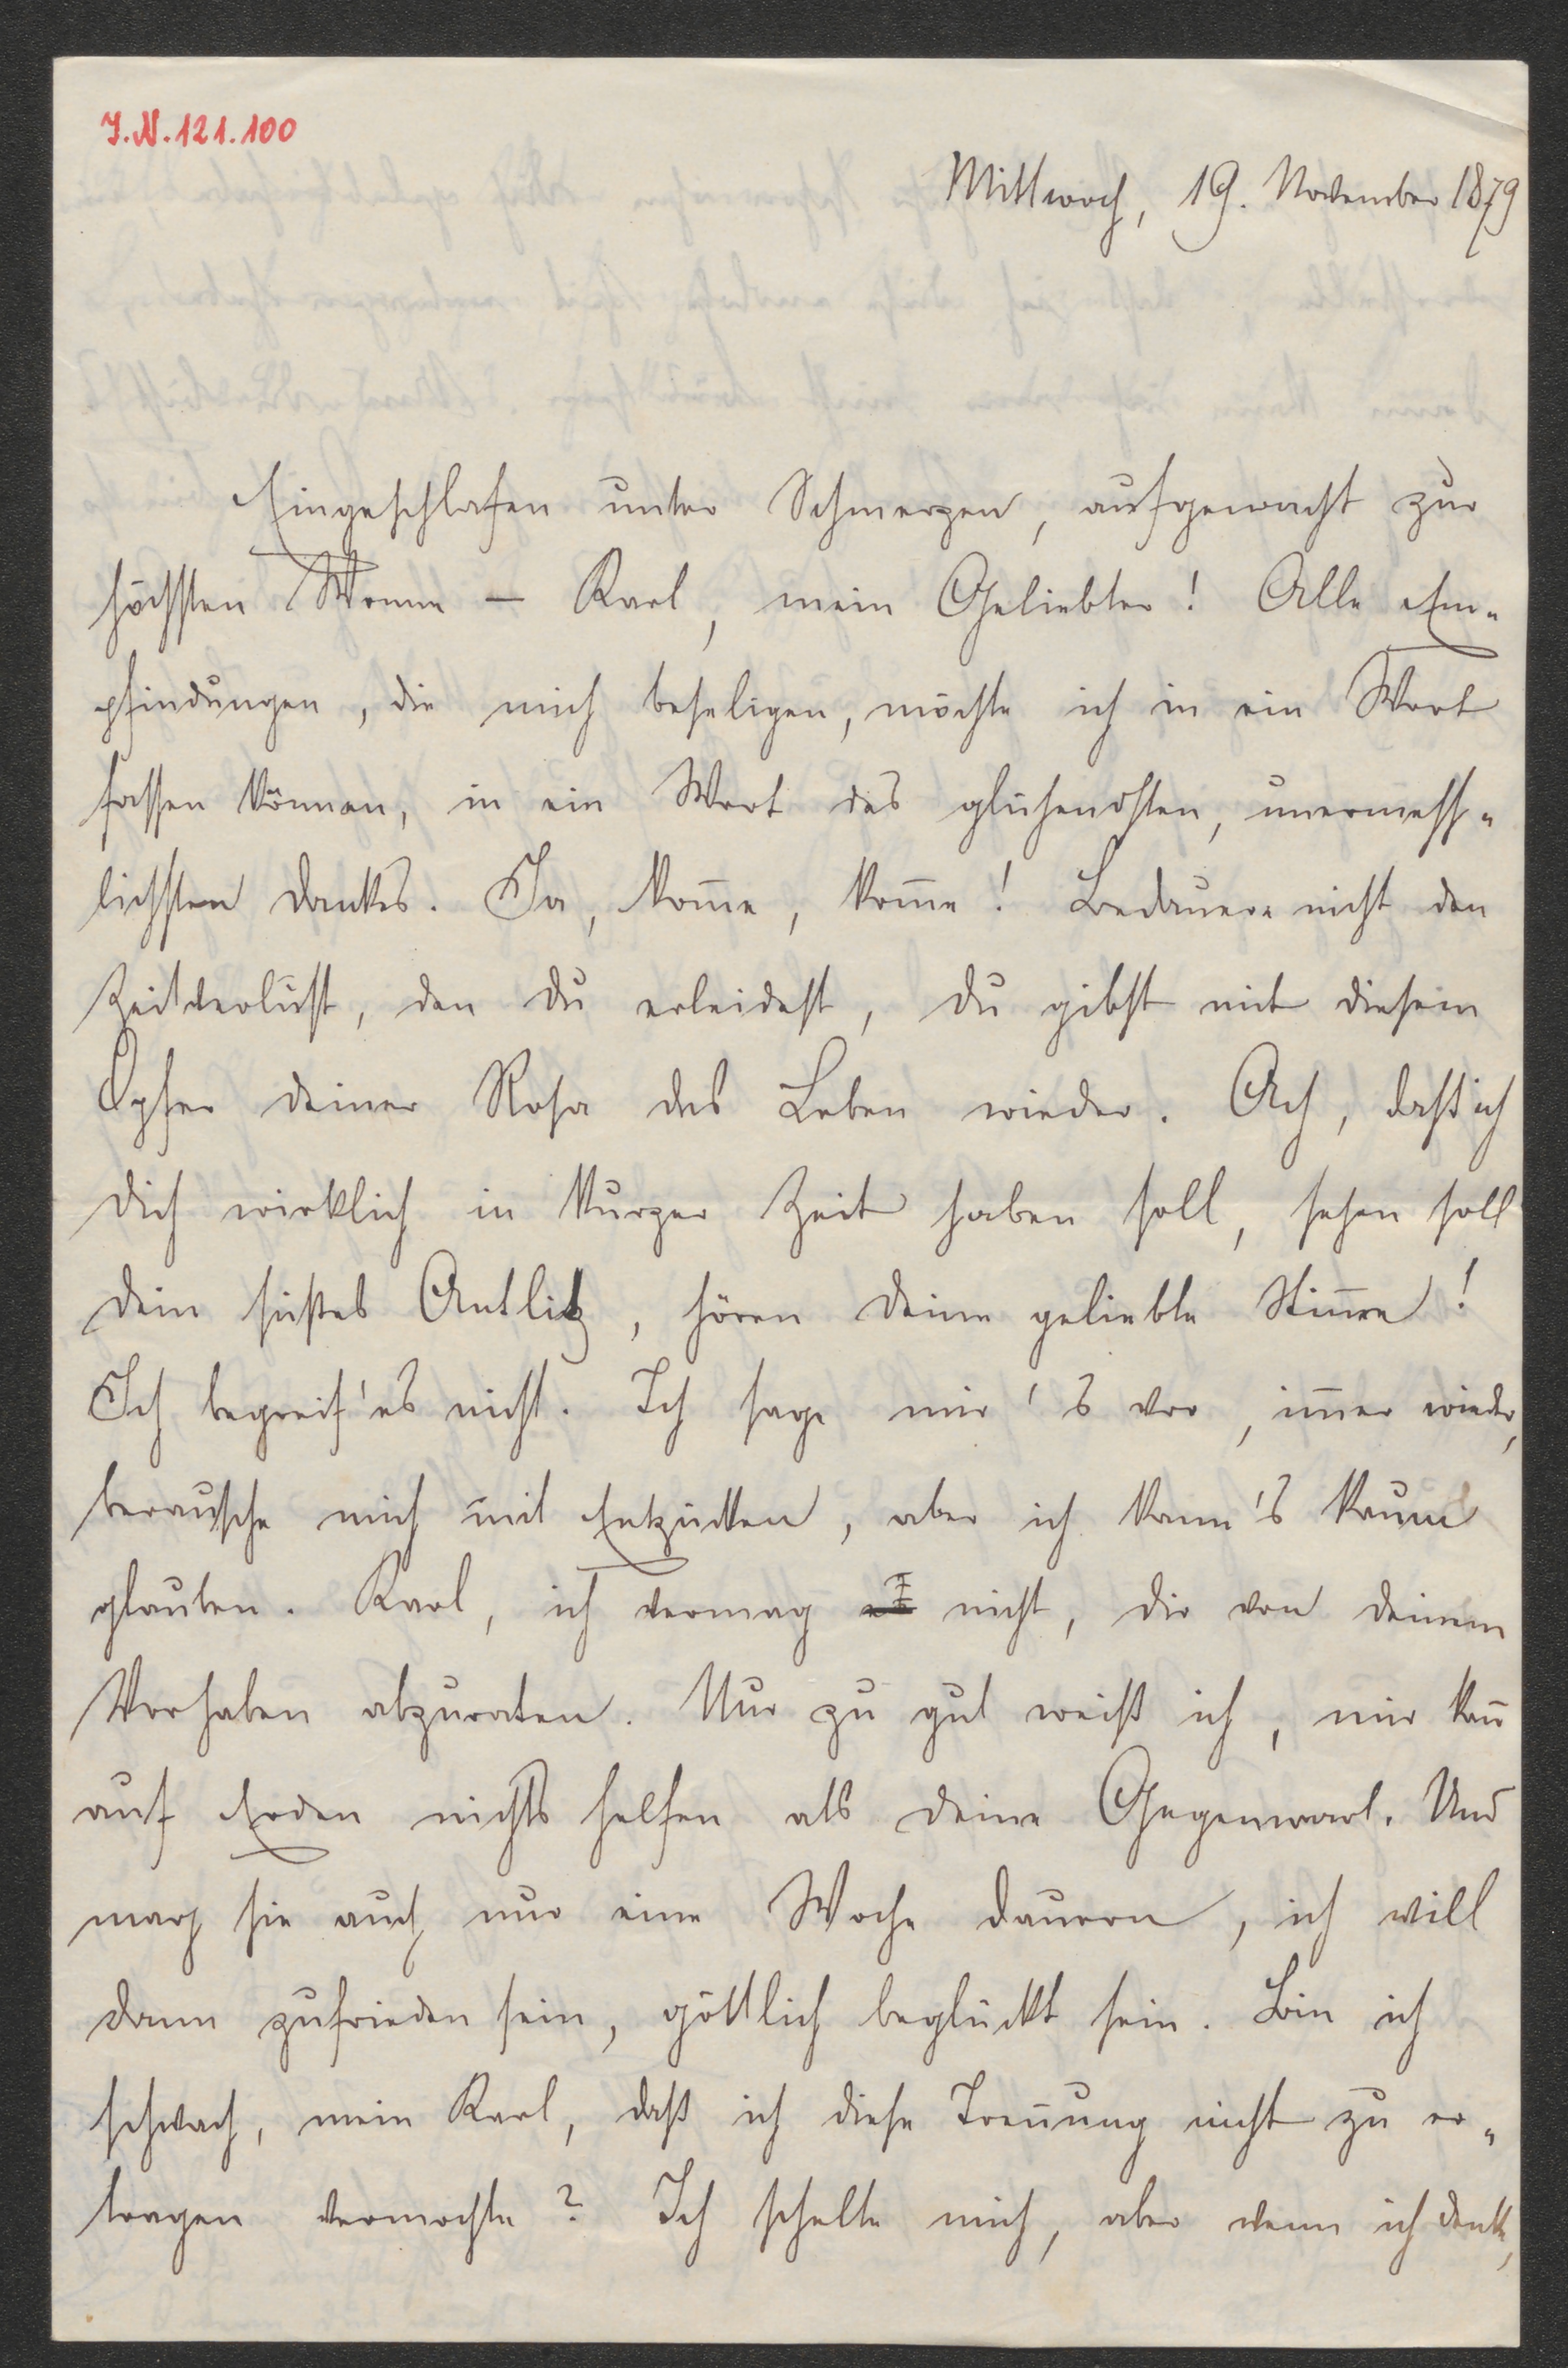 J.N.121.100
Mittwoch, 19. November 1879
Eingeschlafen unter Schmerzen, aufgewacht zur
höchsten Wonne – Karl, mein Geliebter! Alle Em-
pfindungen, die mich beseligen, möchte ich in ein Wort
fassen können, in ein Wort des glühendsten, unermess-
lichsten Dankes. Ja, kom̅e, kom̅e! Bedauere nicht den
Zeitverlust, den du erleidest, du gibst mit diesem
Opfer deiner Rosa das Leben wieder. Ach, daß ich
dich wirklich in kurzer Zeit haben soll, sehen soll
dein süßes Antlitz, hören deine geliebte Stim̅e!
Ich begreif' es nicht. Ich sage mir's vor, im̅er wieder,
berausche mich mit Entzücken, aber ich kann's kaum
glauben. Karl, ich vermag es nicht, dir von deinem
Vorhaben abzuraten. Nur zu gut weiß ich, mir kan̅
auf Erden nichts helfen als deine Gegenwart. Und
mag sie auch nur eine Woche dauern, ich will
dann zufrieden sein, göttlich beglückt sein. Bin ich
schwach, mein Karl, daß ich diese Tren̅ung nicht zu er-
tragen vermochte? Ich schelte mich, aber wenn ich denke,